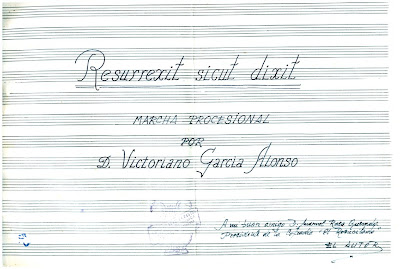 Resurrexit sicut dixit
MARCHA PROCESIONAL
POR
D. Victoriano García Alonso
A mi buen amigo D. Manuel
de la
EL AUTOR